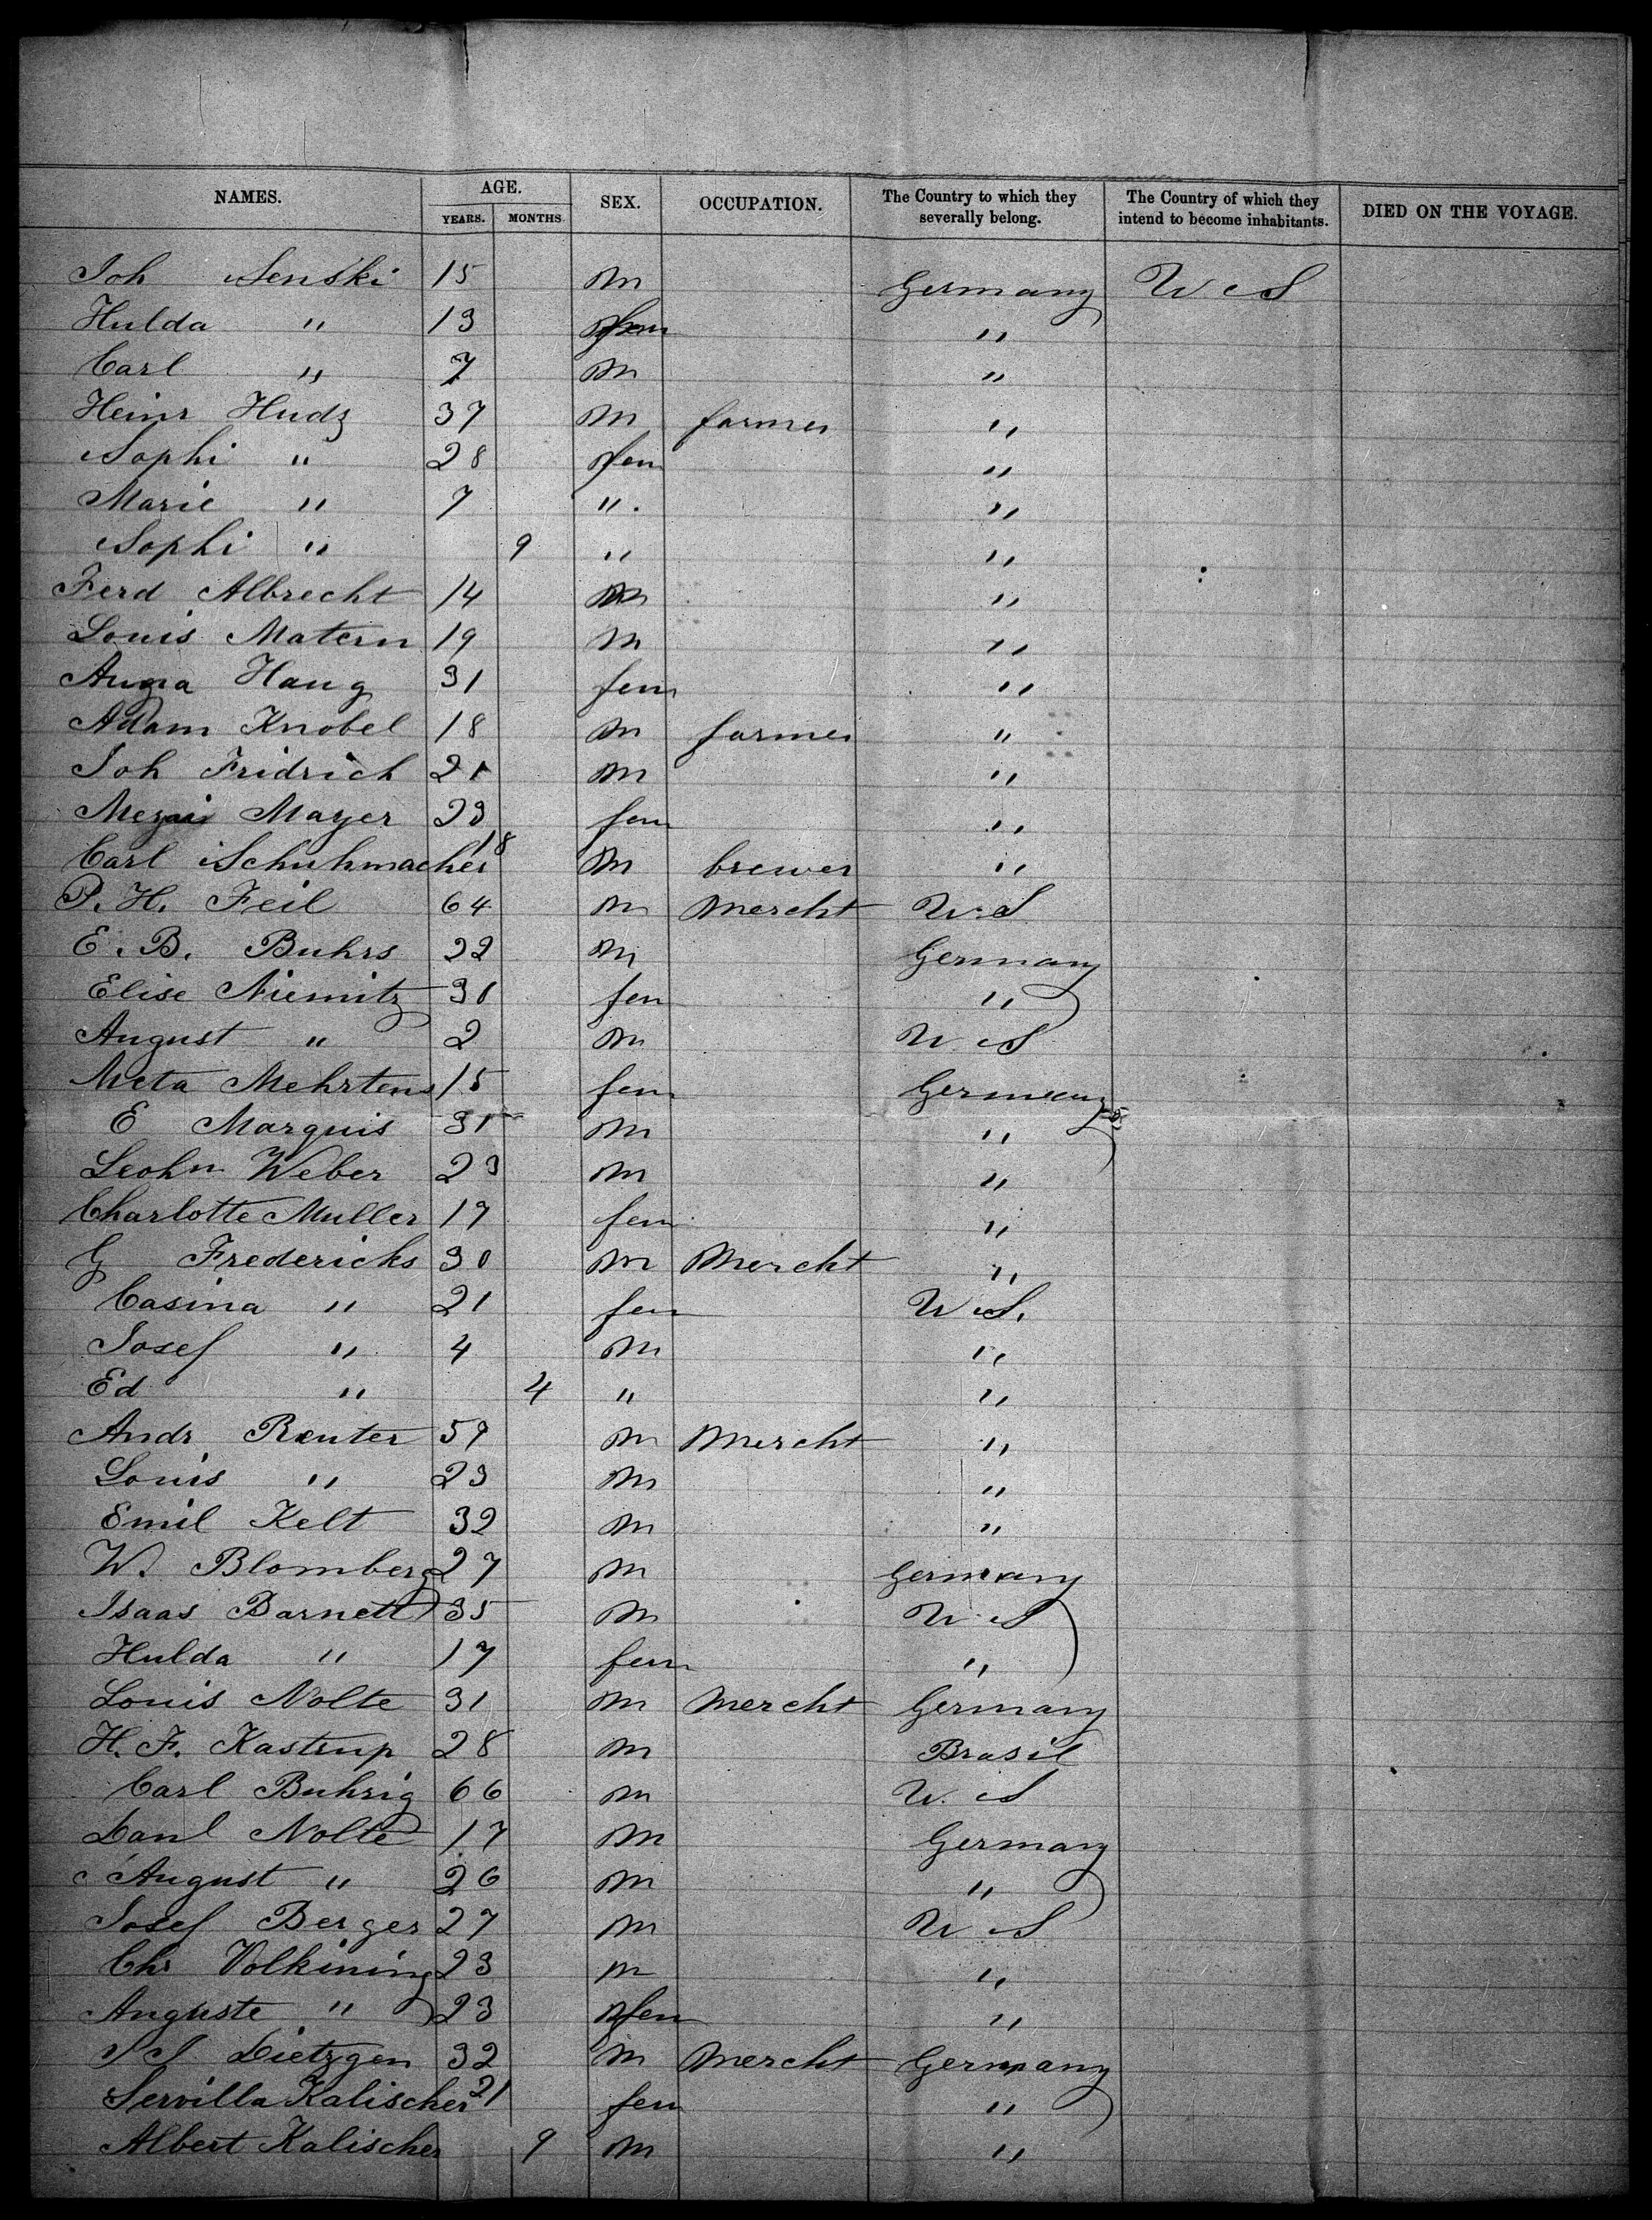 NAMES. AGE. SEX. OCCUPATION. The Country to which they severally belong. The Country of which they intend to become inhabitants. DIED ON THE VOYAGE.
YEARS. MONTHS
Joh Senski 15 m Germany U S
Hulda " 13 fem "
Carl " 7 m "
Heinr Hudz 37 m farmer "
Sophi " 28 fem "
Marie " 7 " "
Sophi " 9 " "
Ferd Albrecht 14 m "
Louis Matern 19 m "
Haug 31 fem "
Adam Knobel 18 m farmer "
Joh Fridrich 21 m "
Mayer 23 fem "
Carl Schuhmacher 18 m brewer "
P. H. Feil 64 m Mercht U.S
E. B. Buhrs 22 m Germany
Elise Niemitz 30 fem "
August " 2 m U. S
Meta Mehrtens 15 fem Germany
E Marquis 31 m "
Leohn Weber 23 m "
Charlotte Muller 19 fem "
G Fredericks 30 m Mercht "
Casina " 21 fem U S.
Josef " 4 m "
Ed " 4 " "
Andr Reuter 59 m Mercht "
Louis " 23 m "
Emil Kelt 32 m "
W. Blomberg 27 m Germany
Isaas Barnett 35 m U. S
Hulda " 17 fem "
Louis Nolte 31 m Mercht Germany
H. F. Kastrup 28 m Brasil
Carl Buhrig 66 m U. S
Danl Nolte 17 m Germany
August " 26 m "
Josef Berger 27 m U S
Chr Volkining 23 m "
Auguste " 23 fem "
Dietzgen 32 m Mercht Germany
Servilla Kalischer 21 fem "
Albert Kalischer 9 m "